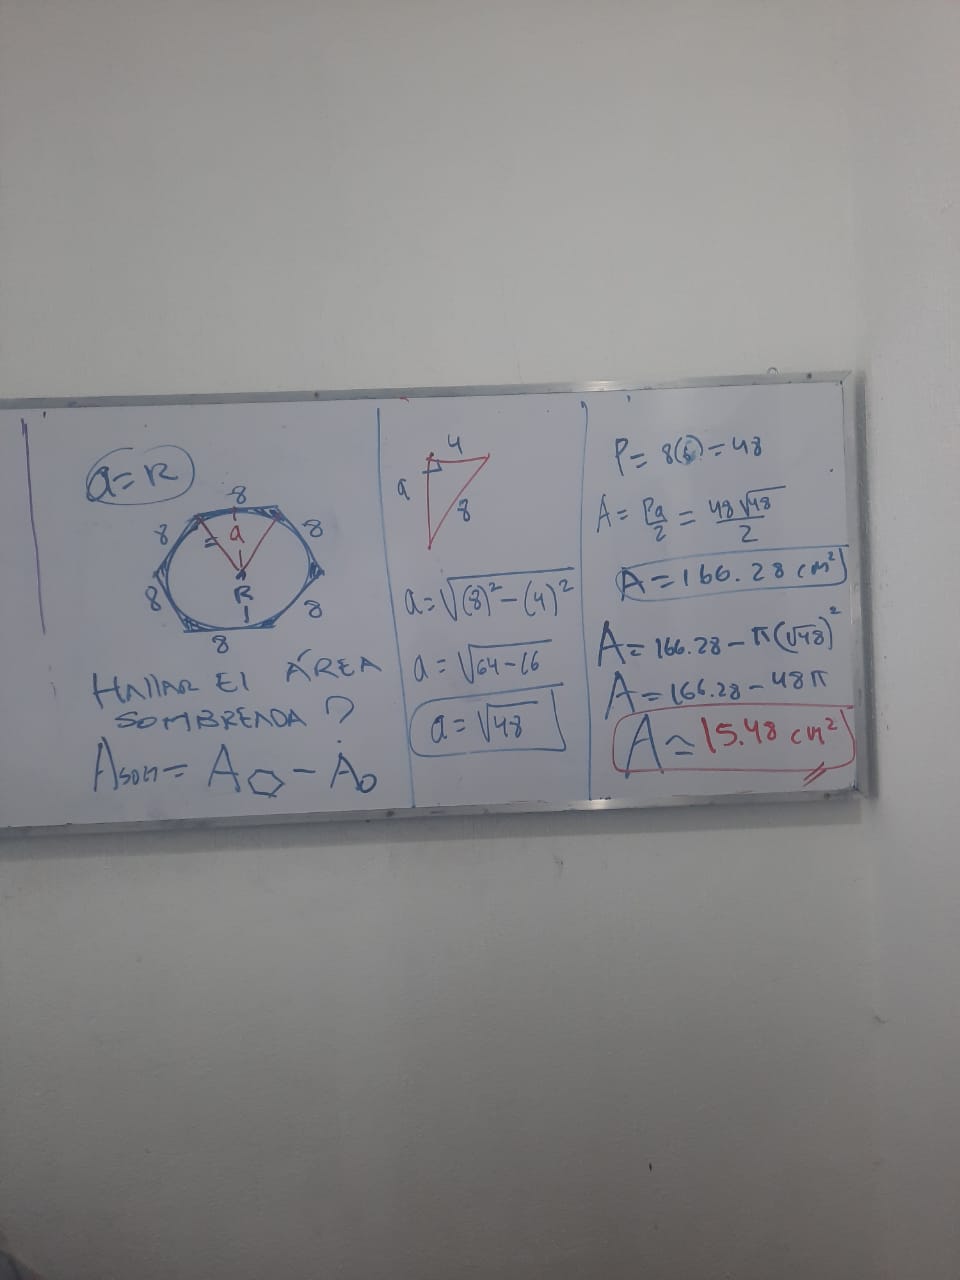 a=R
8
8
8
a
R
8
8
8
HALLAR El ÁREA
SOMBREADA?
Asom= A⬡ - A○
4
a
8
a=√(8)²-(4)²
a=√64-16
a=√48
P= 8(6)=48
A= Pa/2 = 48√48/2
A=166.28 cm²
A=166.28-π(√48)²
A=166.28-48π
A≃15.48 cm²